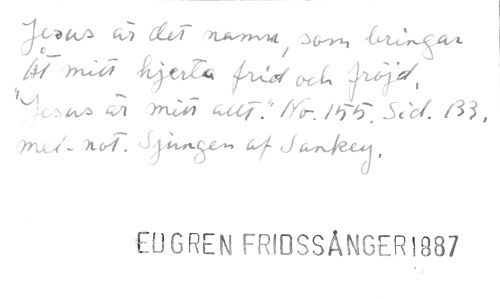 Jesus är det namn, som bringar
Åt mitt hjerta frid och fröjd,
"Jesus är mitt allt." No. 155. Sid. 133,
med not. Sjungen af Sankey.
EDGREN FRIDSSÅNGER 1887